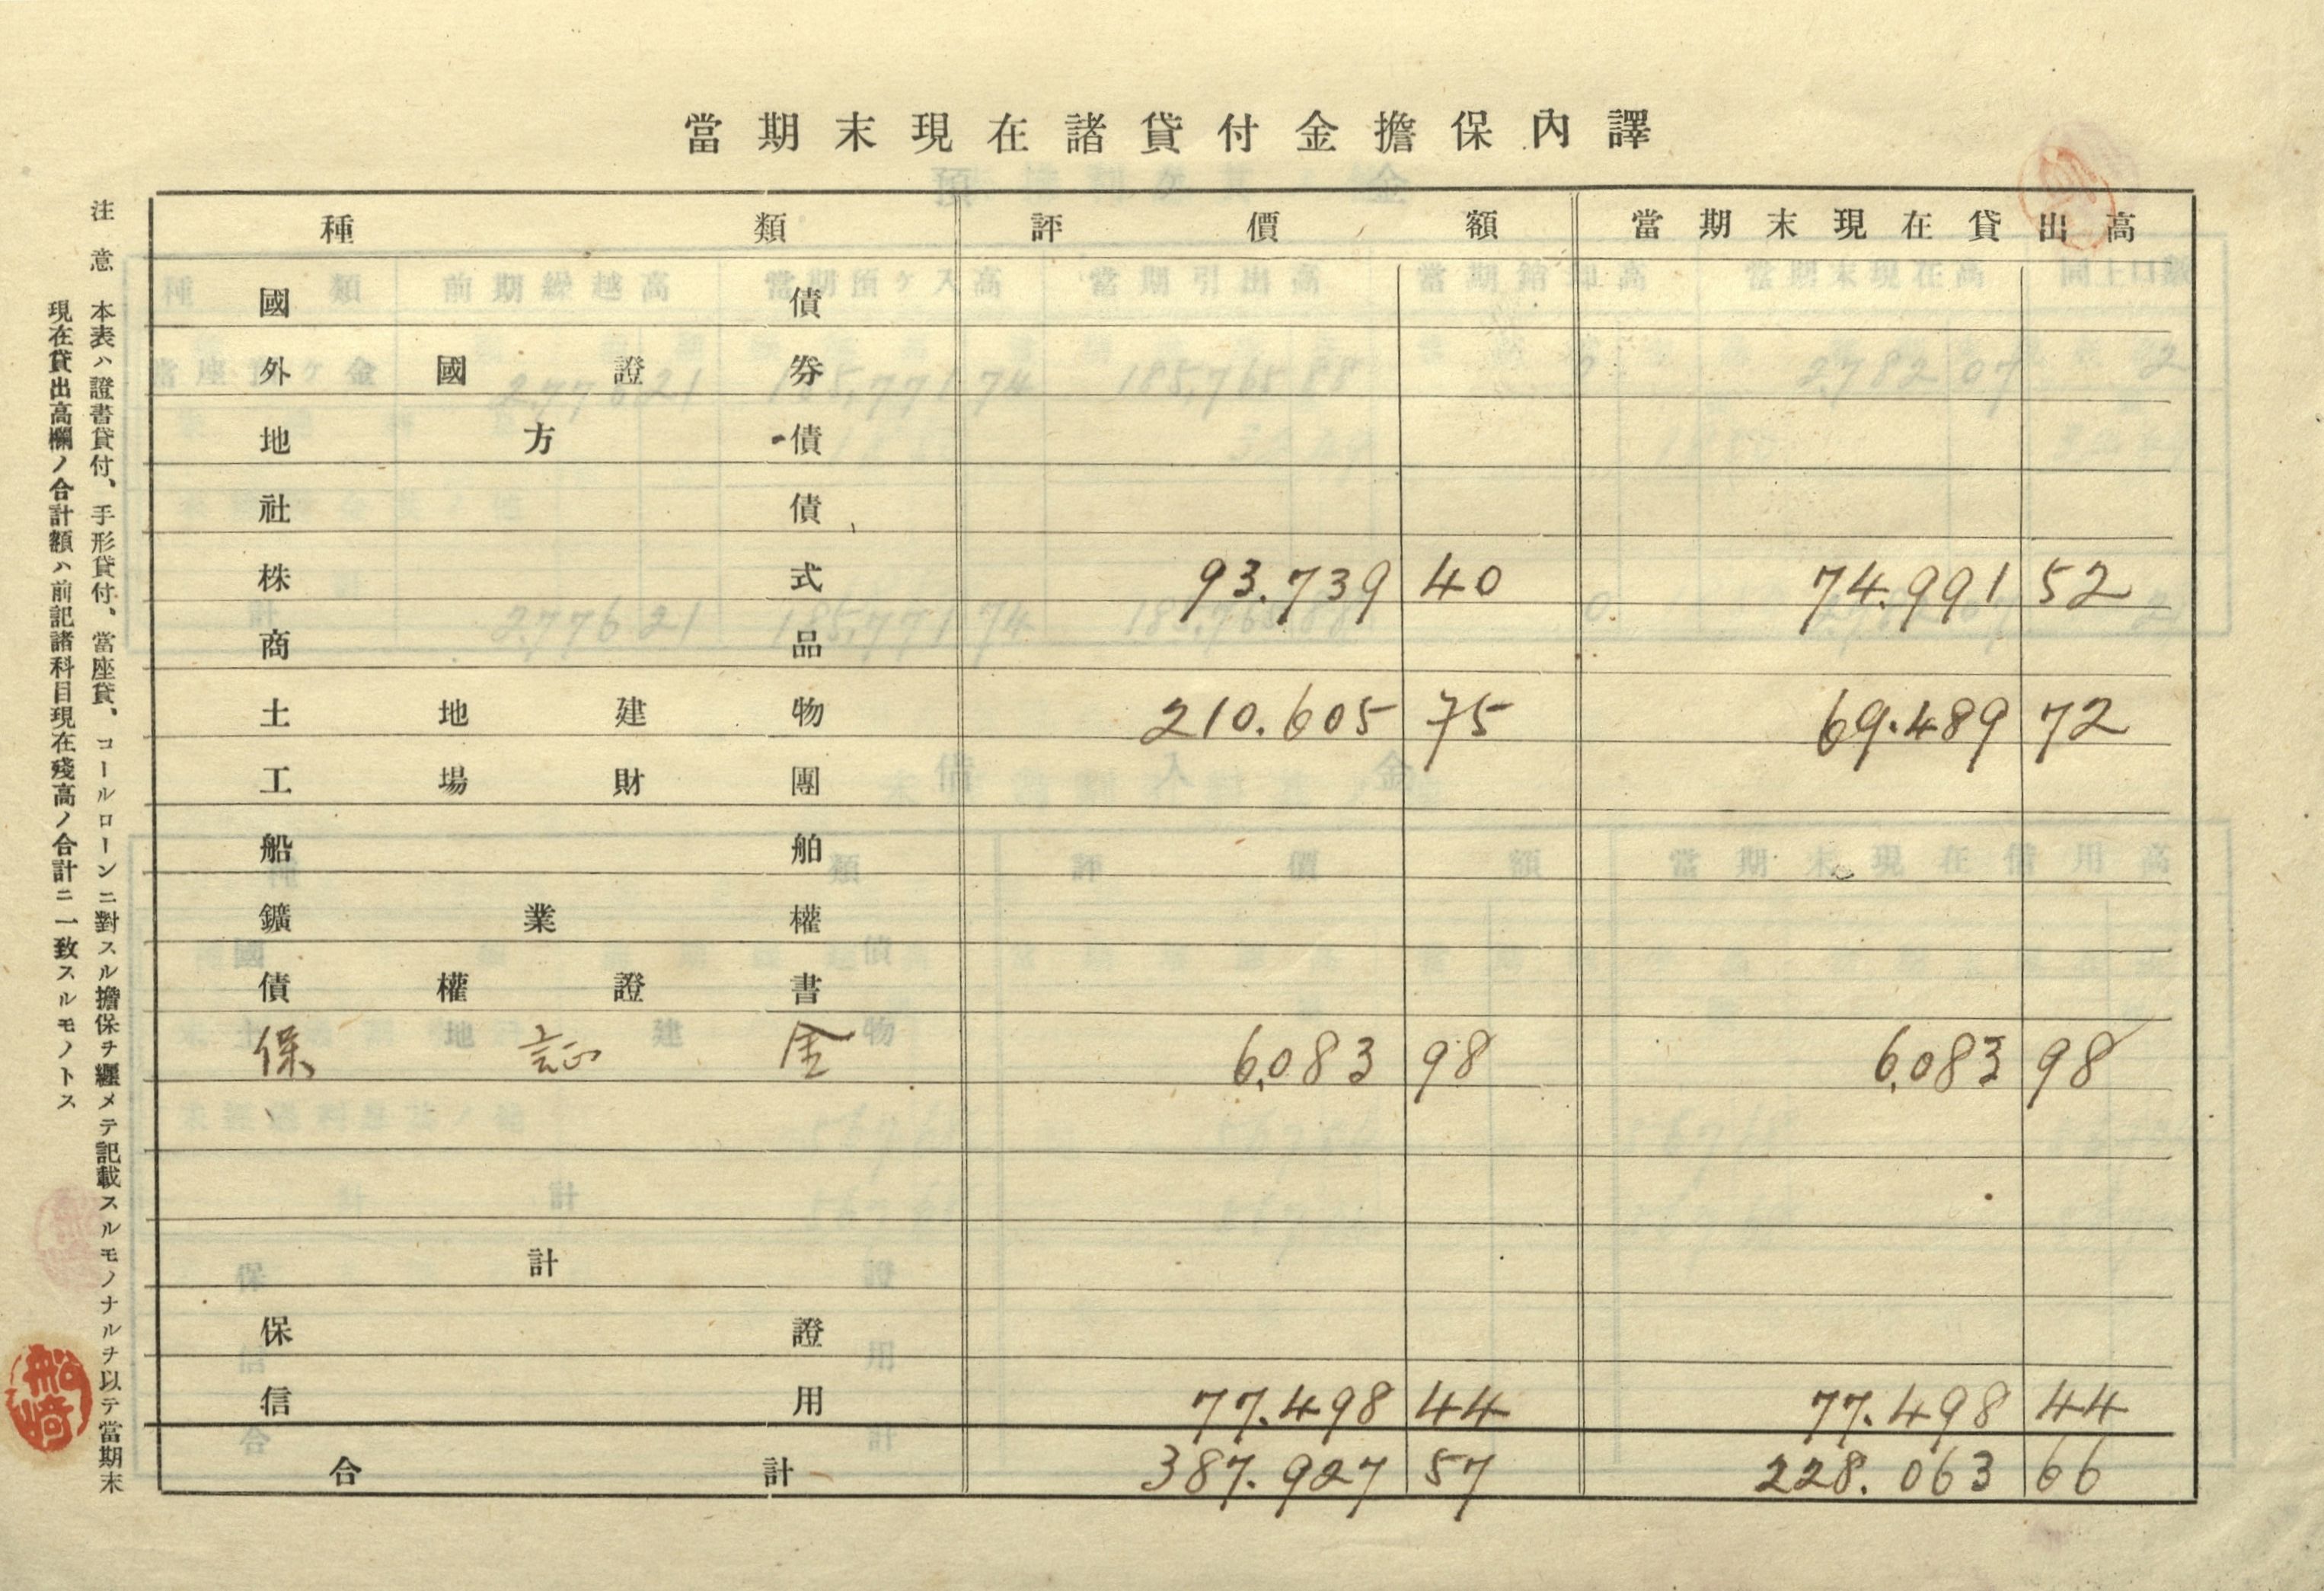 當期末現在諸貸付金擔保內譯
種類 評價額 當期末現在貸出高
國債
外國證券
地方債
社債
株式 93.739 40 74.991 52
商品
土地建物 210.605 75 69.489 72
工場財團
船舶
鑛業權
債權證書
保証金 6,083 98 6,083 98
計
保證
信用 77.498 44 77.498 44
合計 387.927 57 228.063 66
注意 本表ハ證書貸付、手形貸付、當座貸、コールローンニ對スル擔保ヲ纒メテ記載スルモノナルヲ以テ當期末
現在貸出高欄ノ合計額ハ前記諸科目現在殘高ノ合計ニ一致スルモノトス
船崎